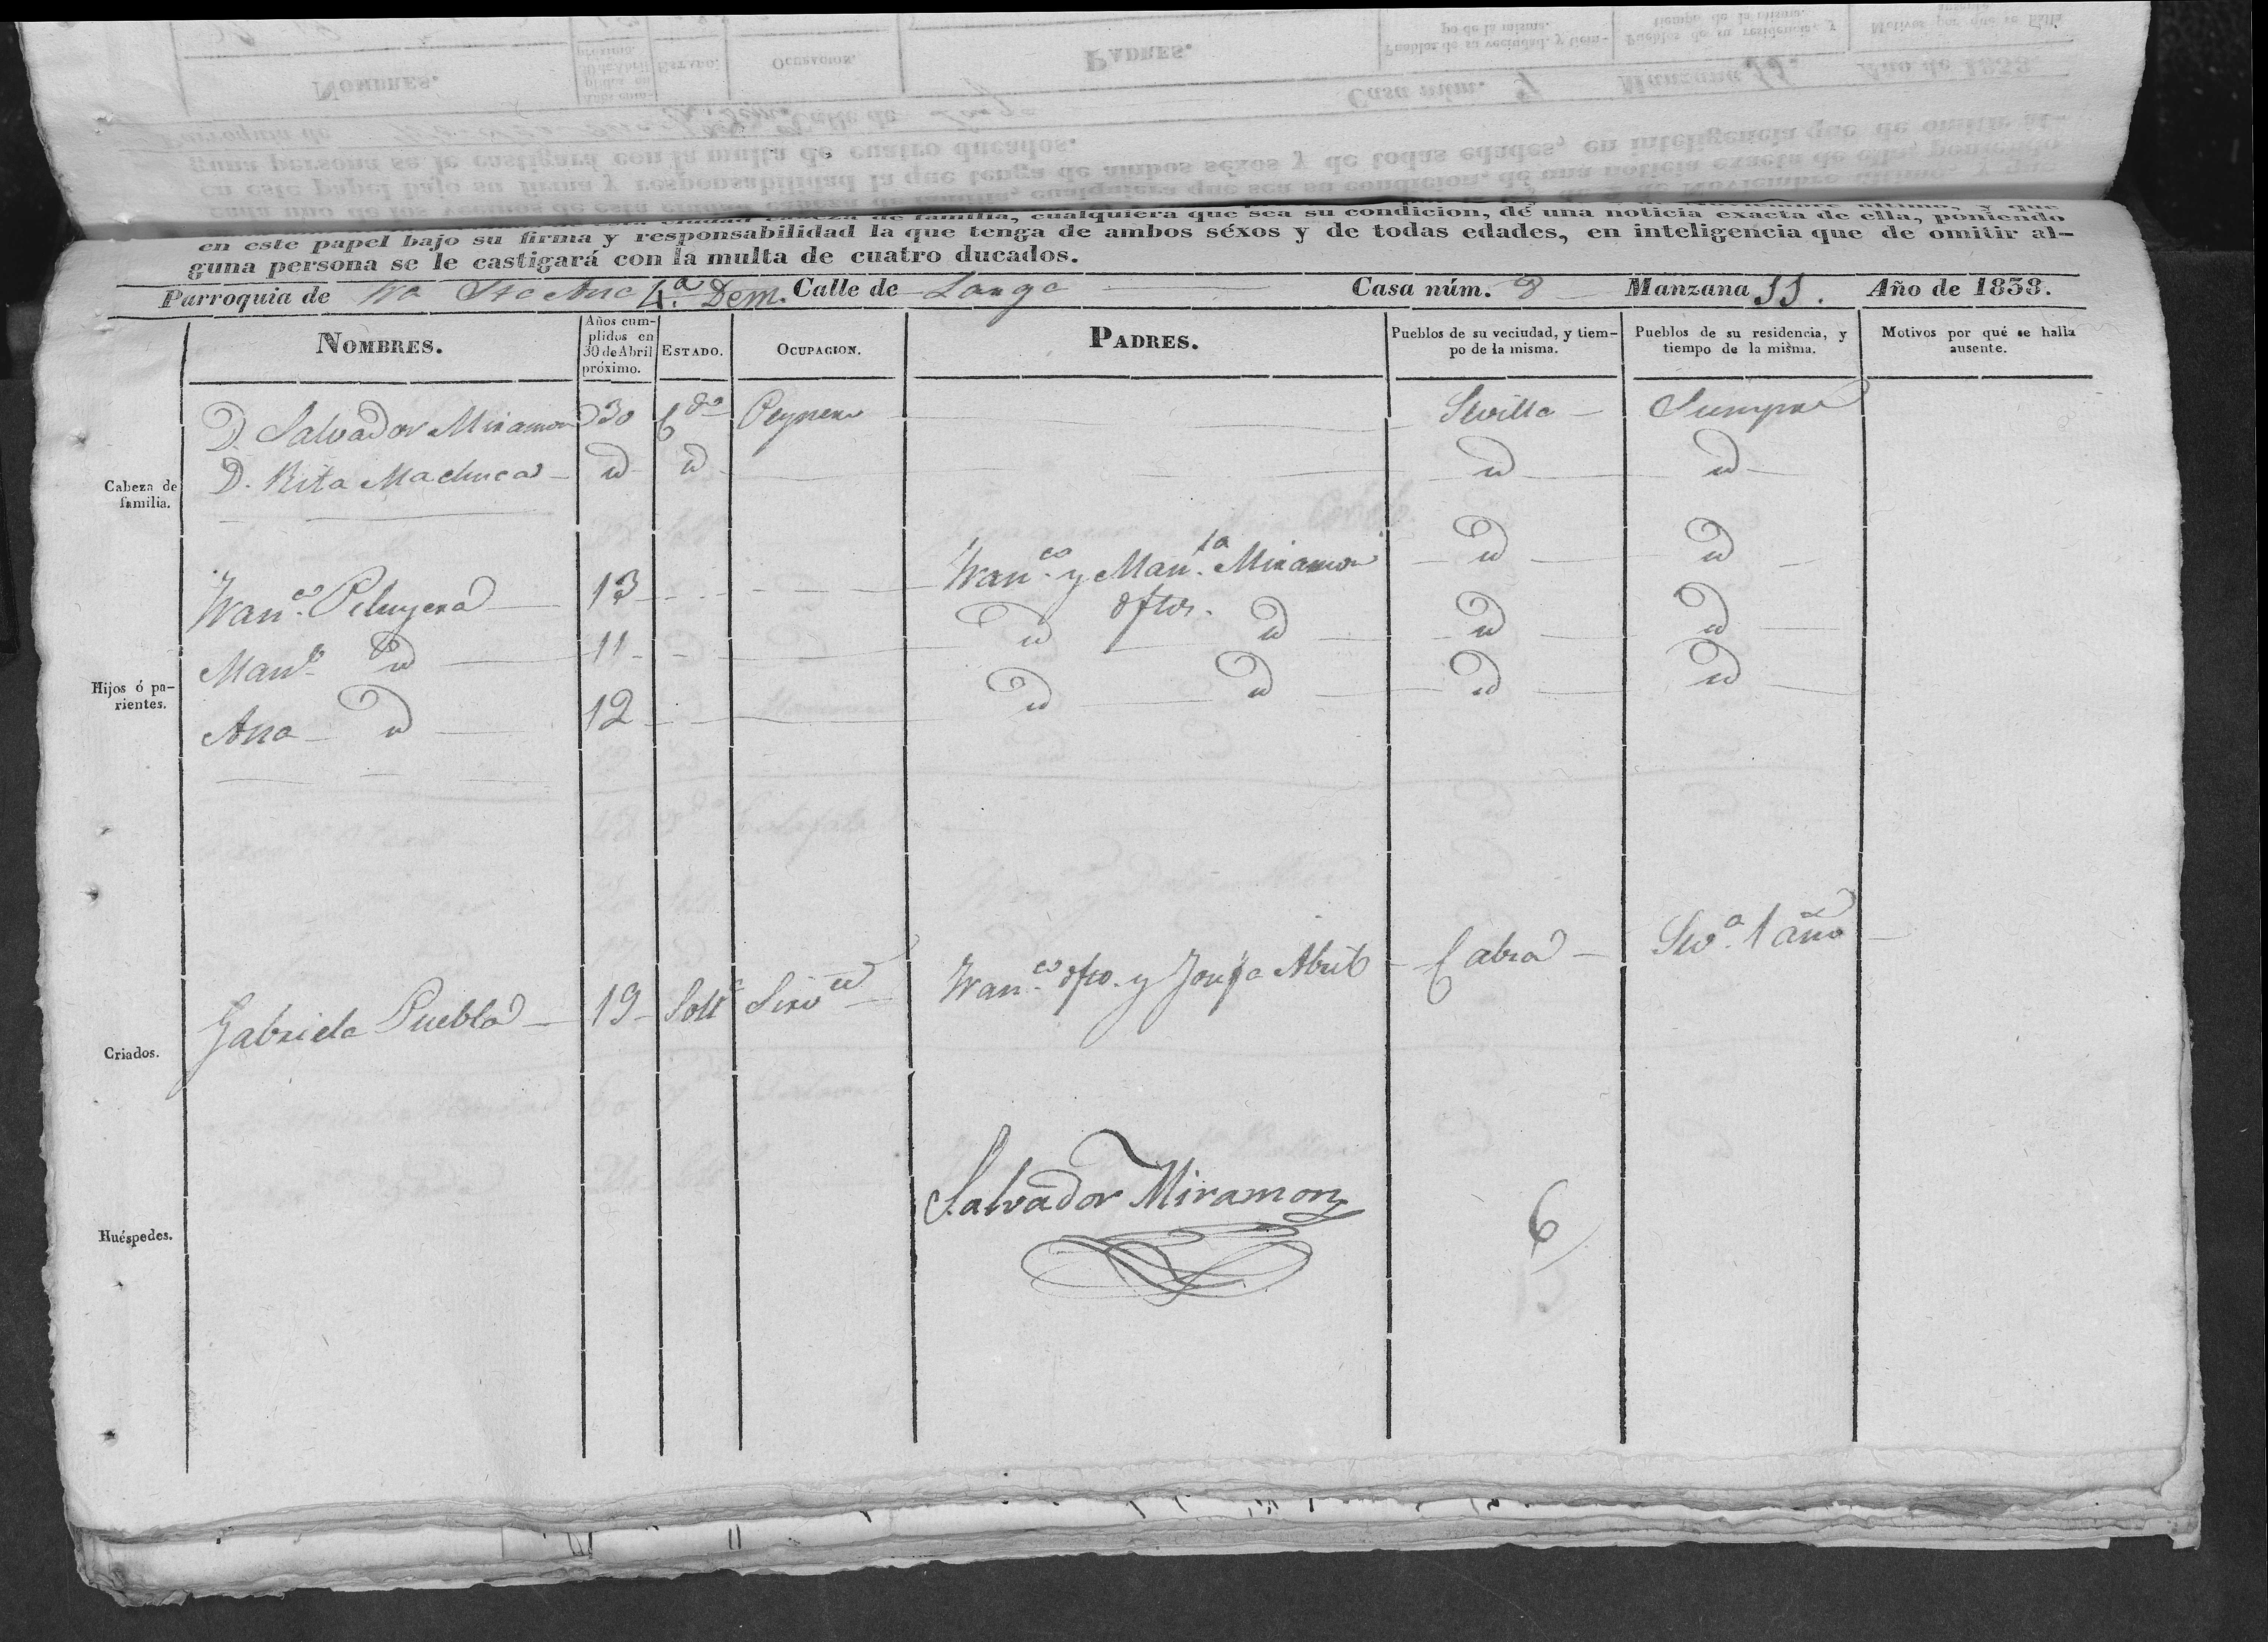 en este papel bajo su firma y responsabilidad la que tenga de ambos séxos y de todas edades, en inteligencia que de omitir al-
guna persona se le castigará con la multa de cuatro ducados.
Parroquia de Sta Ana 4.a Dem. Calle de Larga Casa núm. 8 Manzana 11. Año de 1838.
NOMBRES.
Años cum-
plidos en
30 de Abril
próximo.
ESTADO.
OCUPACION.
PADRES.
Pueblos de su vecindad, y tiem-
po de la misma.
Pueblos de su residencia, y
tiempo de la misma.
Motivos por qué se halla
ausente.
Cabeza de
familia.
D. Salvador Miramon 30 Cdo Sevilla Siempre
D. Rita Machuca id id id id
Hijos ó pa-
rientes.
Franco. 13 Franco. y Manla. Miramon id id
dftos.
Manl id 11 id id id id
Ana id 12 id id id id
Criados.
Gabriela Puebla 19 Solta Sirvte Franco. dfto. y Josefa Abril Cabra Seva. 1 año
Huéspedes.
Salvador Miramon
6